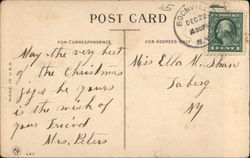 POST CARD
BOONVILLE
DEC 22
N.Y.
FOR CORRESPONDENCE
FOR ADDRESS ONLY
MADE IN U.S.A.
May the very best
of the Christmas
joys be yours
is the wish of
your Friend
Mrs. Peters
Miss Ella M. Shaw
Taberg
NY